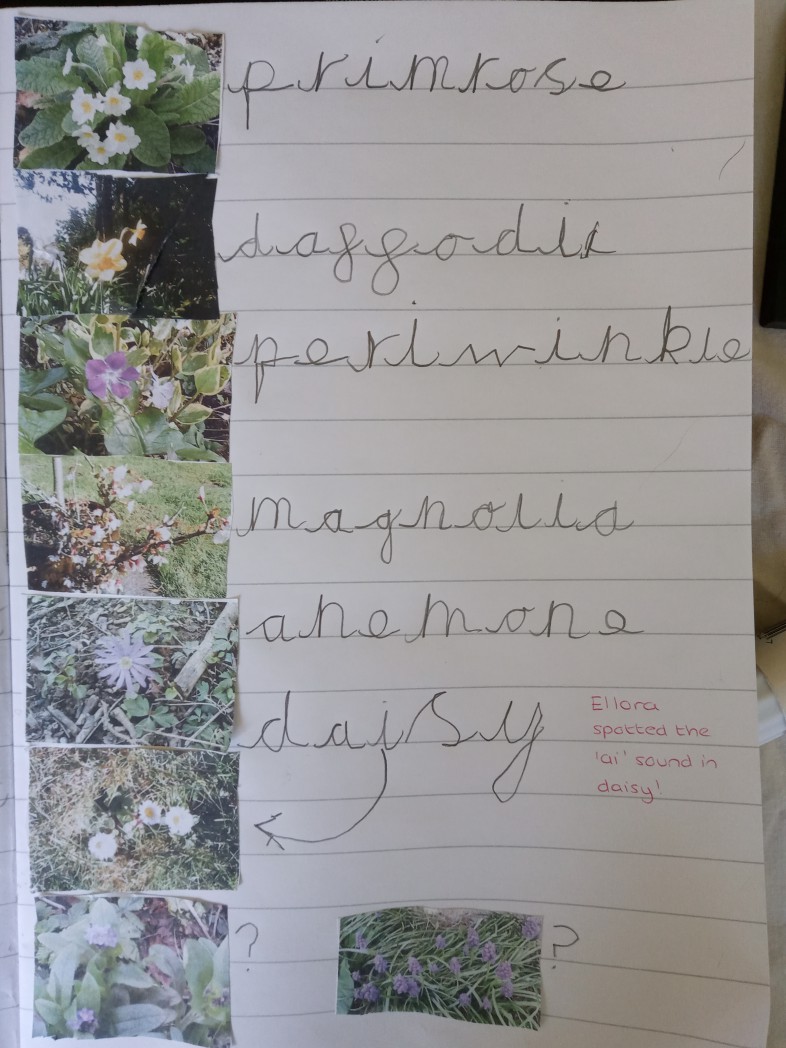 primrose
daffodil
periwinkle
magnolia
anemone
daisy
Ellora
spotted the
'ai' sound in
daisy!
? ?